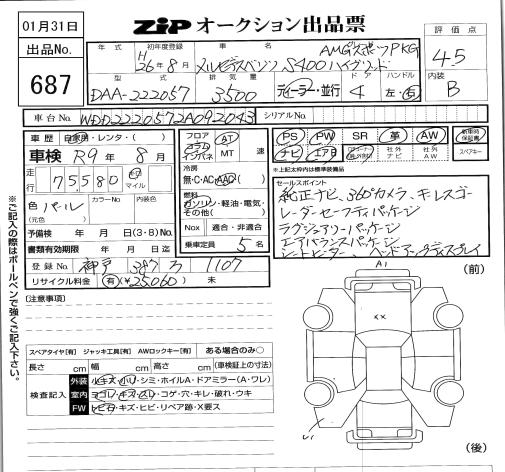 01月31日
ZIP オークション出品票
出品No.
687
年式 初年度登録 車名
H 26年8月 メルセデスベンツ S400ハイブリッド AMGスポーツPKG
評価点
4.5
内装
B
型式 排気量 ドア ハンドル
DAA-222057 3500 ディーラー・並行 4 左・右
車台No. WDD2220572A092043 シリアルNo.
車歴 自家用・レンタ・( )
車検 R9年8月
走行 75580 km マイル
色 パール (元色) カラーNo. 内装色
予備検 年 月 日(3・8)No.
書類有効期限 年 月 日迄
登録No. 神戸 347 ろ 1107
リサイクル料金 有(¥25,060) 未
フロア コラム インパネ AT MT 速
冷房 無・C・AC・AAC( )
燃料 ガソリン・軽油・電気・その他( )
Nox 適合・非適合
乗車定員 5名
PS PW SR 革 AW 新車時保証書
ナビ エアB 社外ナビ 社外AW スペアキー
※上記太枠内は標準装備品
セールスポイント
純正ナビ、360°カメラ、キーレスゴー
レーダーセーフティパッケージ
ラグジュアリーパッケージ
エアバランスパッケージ
シートヒーター、ヘッドアップディスプレイ
[注意事項]
スペアタイヤ[有] ジャッキ工具[有] AWロックキー[有] ある場合のみ○
長さ cm 幅 cm 高さ cm (車検証上の寸法)
検査記入
外装 小キズ・小凹・シミ・ホイルA・ドアミラー(A・ワレ)
室内 ヨゴレ・キズ・スレ・コゲ・穴・キレ・破れ・ウキ
FW トビ石・キズ・ヒビ・リペア跡・X要ス
※ご記入の際はボールペンで強くご記入下さい。
A1
(前)
XX
(後)